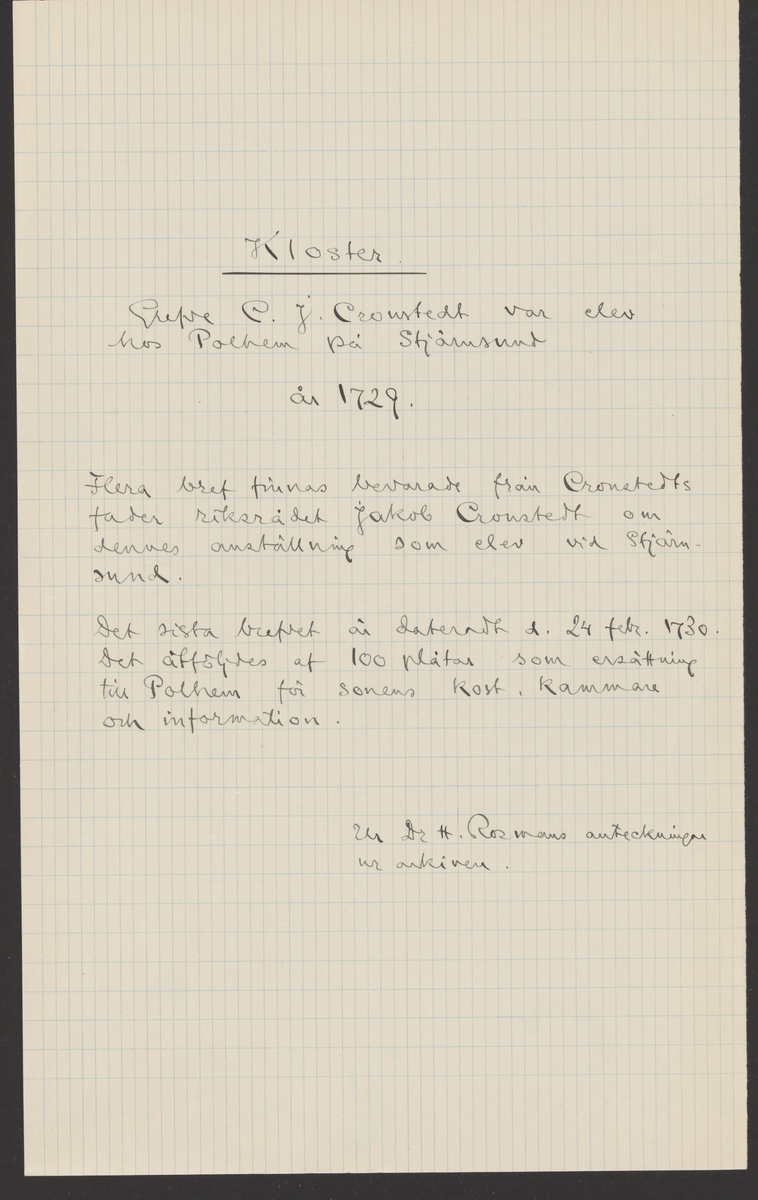 Kloster.
Grefve C. J. Cronstedt var elev
hos Polhem på Stjärnsund
år 1729.
Flera bref finnas bevarade från Cronstedts
fader riksrådet Jakob Cronstedt om
dennes anställning som elev vid Stjärn-
sund.
Det sista brefvet är dateradt d. 24 febr. 1730.
Det åtföljdes af 100 plåtar som ersättning
till Polhem för sonens kost, kammare
och information.
Ur Dr H. Rosmans anteckningar
ur arkiven.